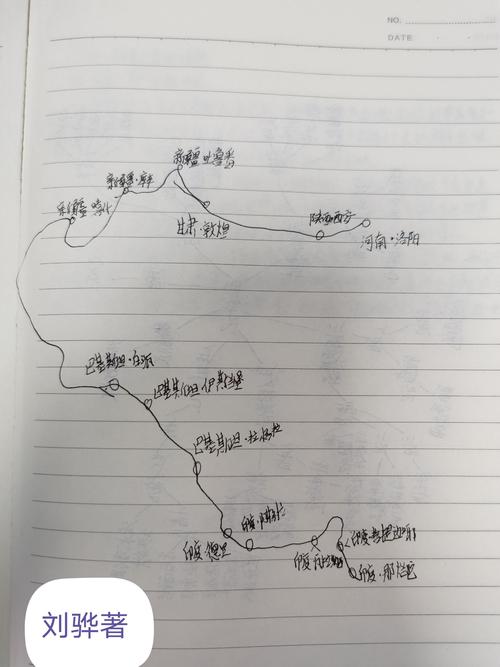 NO.
DATE:
新疆·吐鲁番
新疆·库车
新疆·喀什
甘肃·敦煌
陕西西安
河南·洛阳
巴基斯坦·白沙瓦
巴基斯坦·伊斯兰堡
巴基斯坦·拉合尔
印度·
印度·德里
印度
印度菩提迦耶
印度·那烂陀
刘骅著